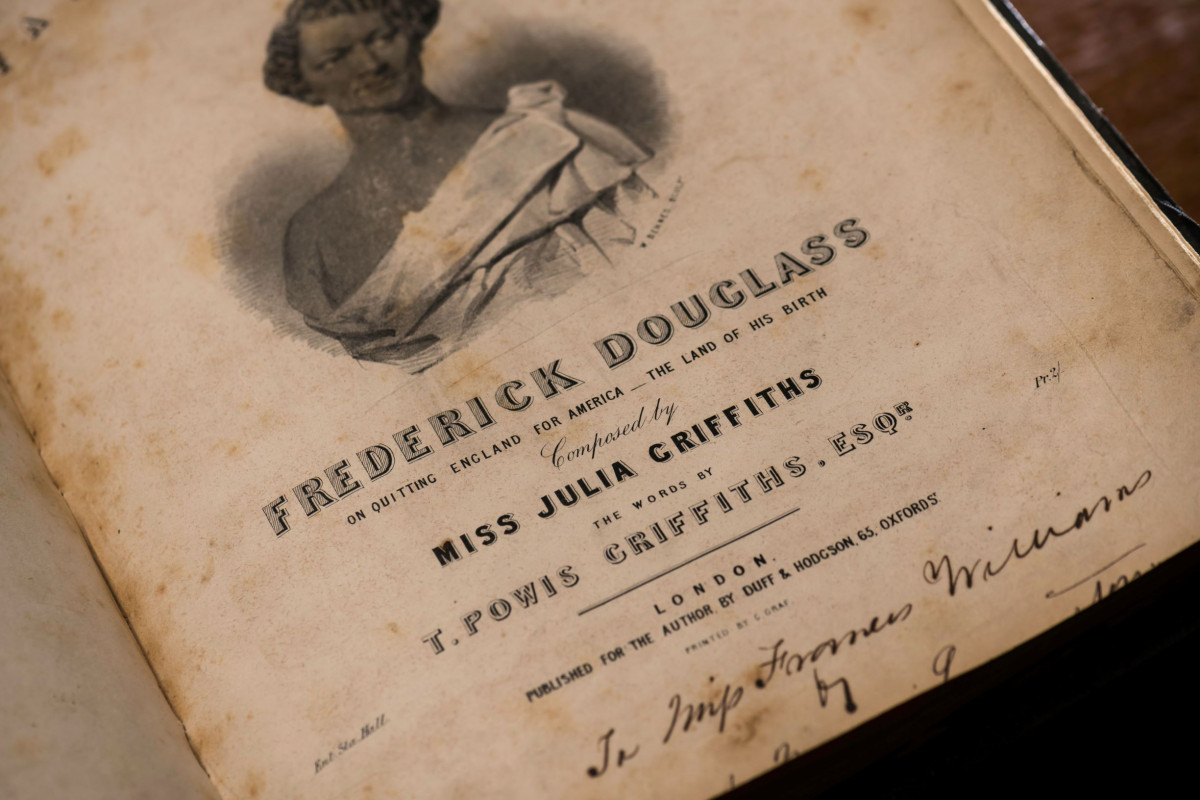 FREDERICK DOUGLASS
ON QUITTING ENGLAND FOR AMERICA — THE LAND OF HIS BIRTH
Composed by
MISS JULIA GRIFFITHS
THE WORDS BY
T. POWIS GRIFFITHS, ESQR.
Pr. 2/
LONDON.
PUBLISHED FOR THE AUTHOR, BY DUFF & HODGSON, 65, OXFORD St
PRINTED BY C. GRAF.
Ent. Sta. Hall.
To Miss Frances Williams
by